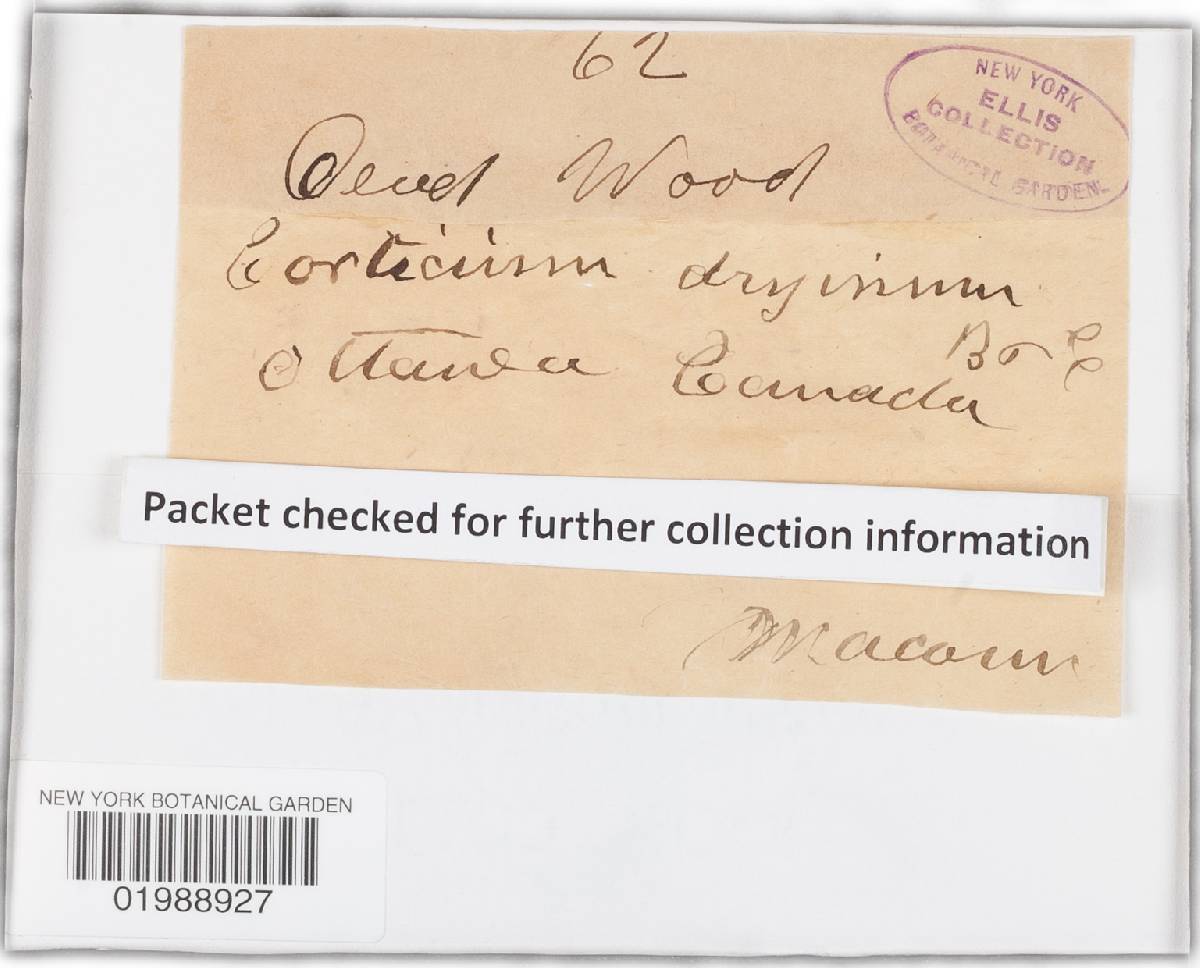 62
NEW YORK
ELLIS
COLLECTION
BOTANICAL GARDEN
Dead Wood
Corticium dryinum
B & C
Ottawa Canada
Packet checked for further collection information
Macoun
NEW YORK BOTANICAL GARDEN
01988927